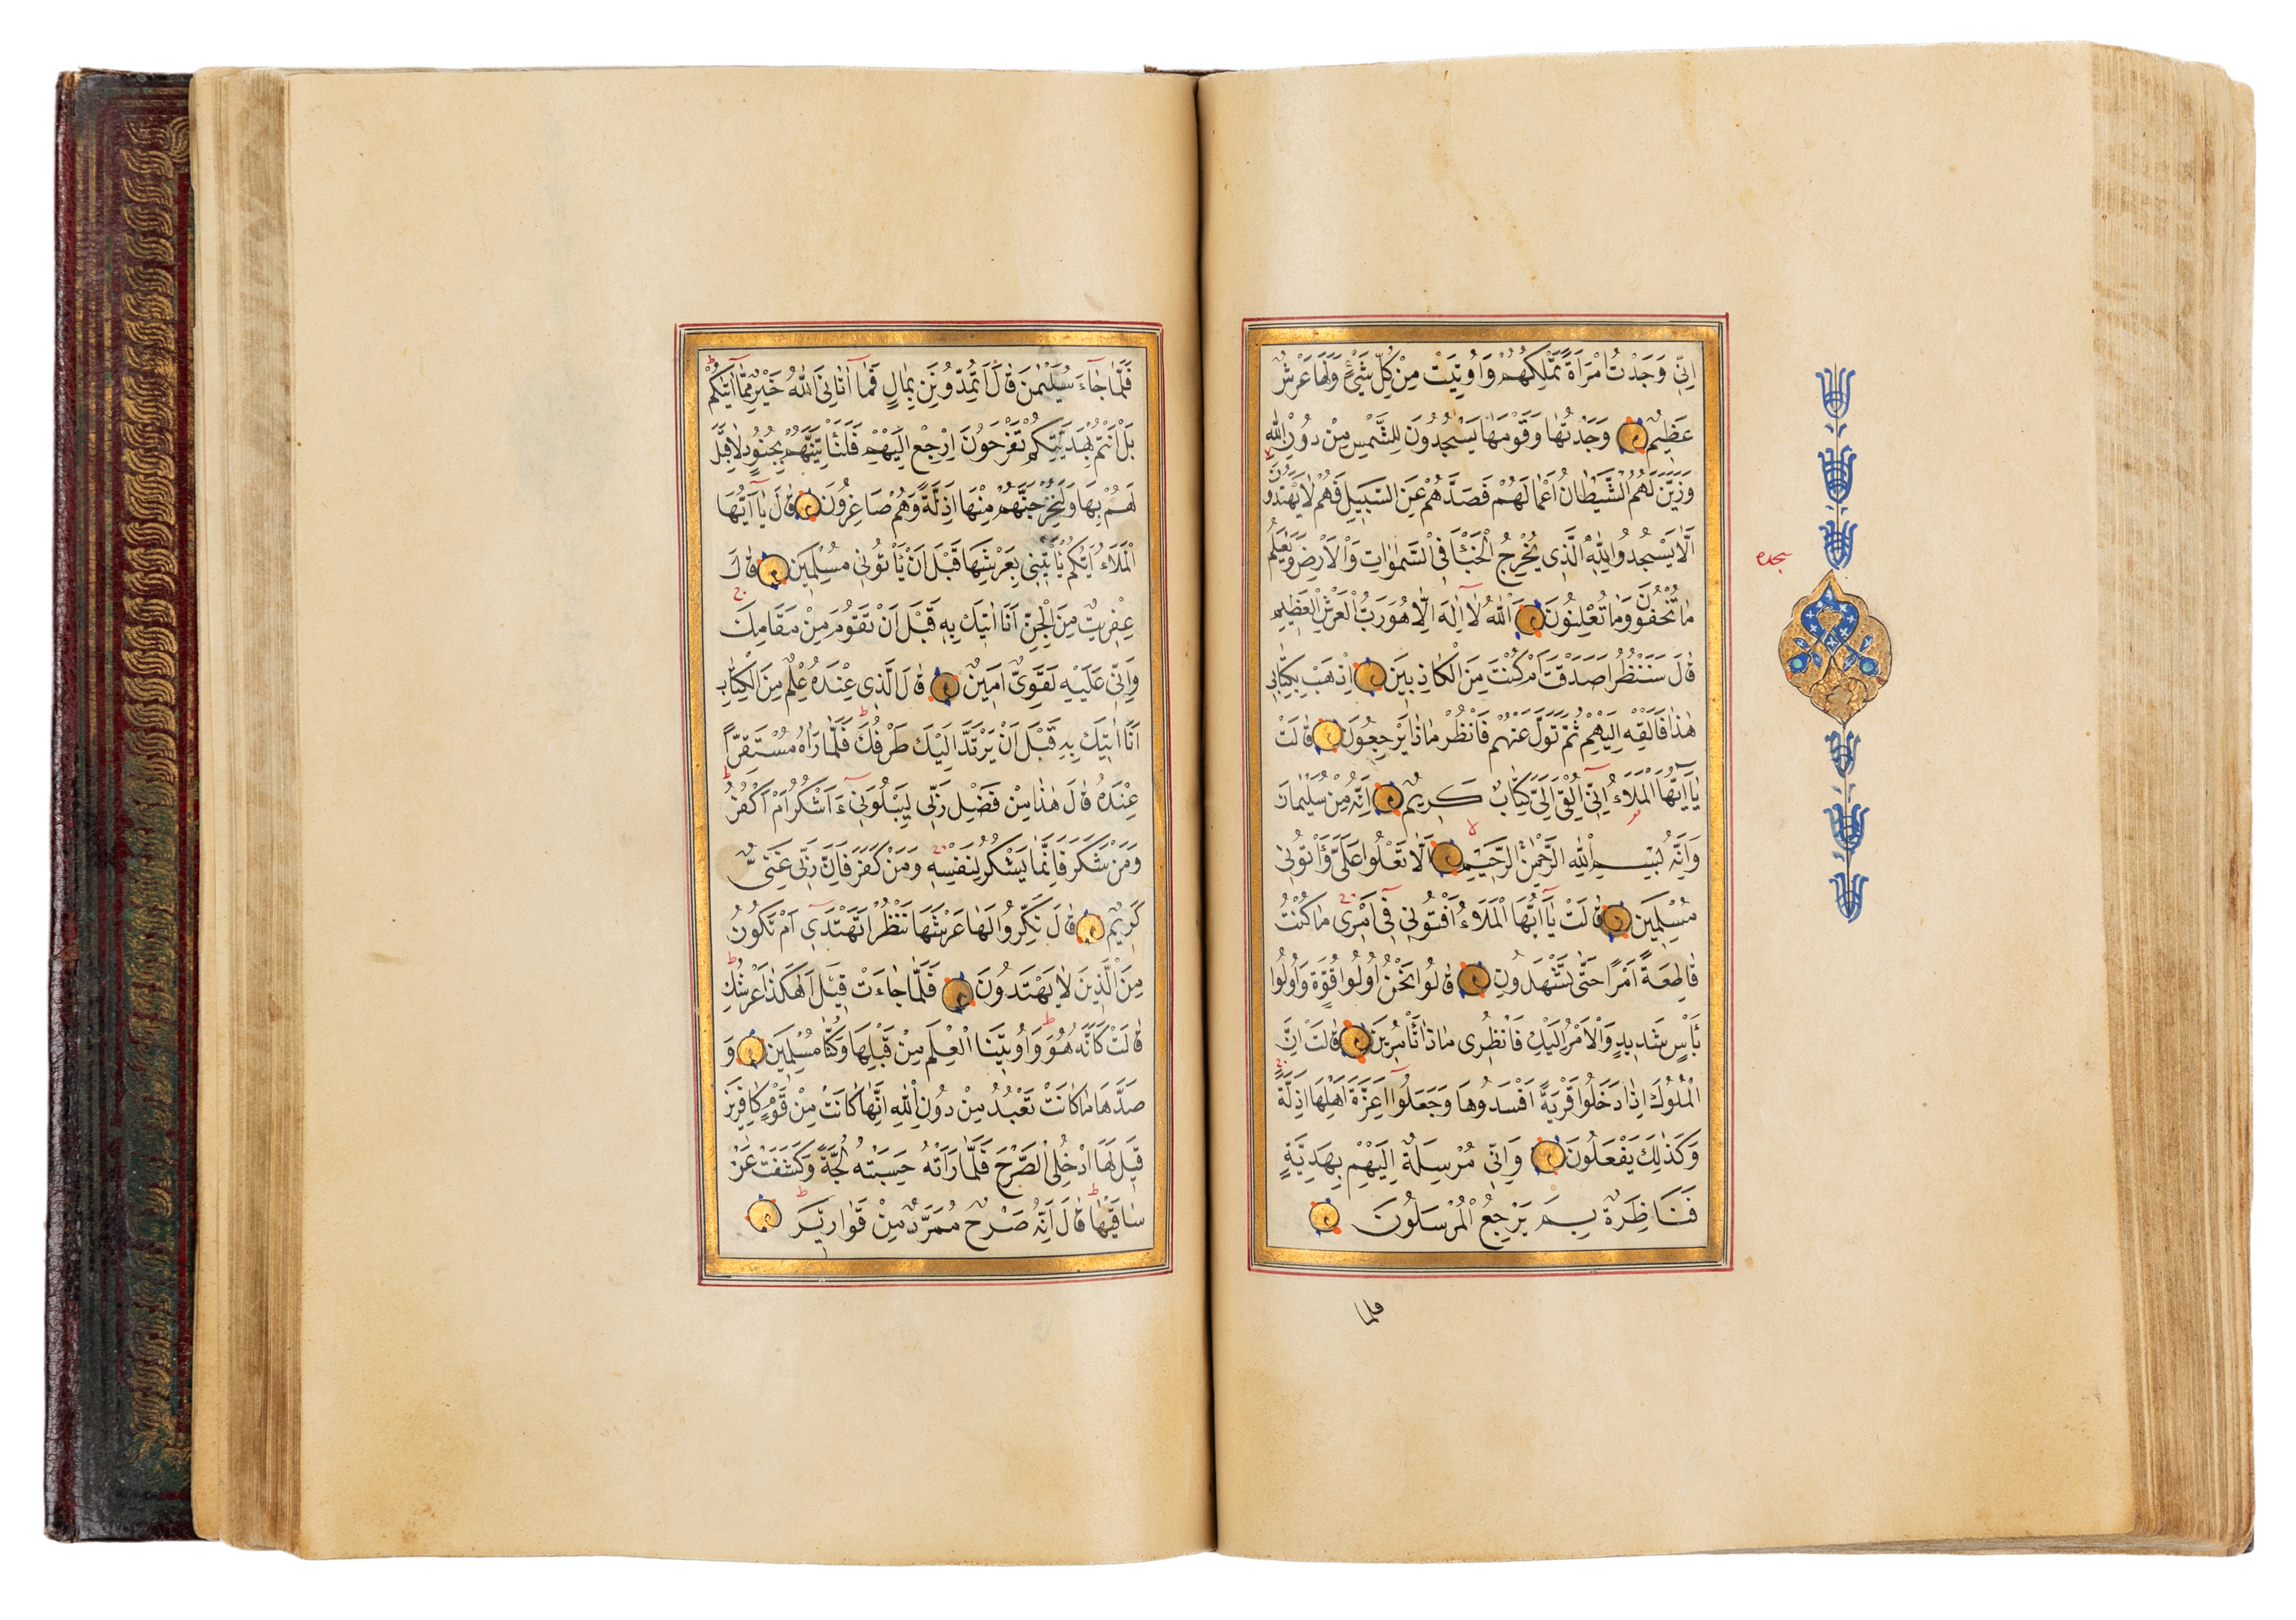 اِنّٖي وَجَدْتُ امْرَاَةً تَمْلِكُهُمْ وَاُوتِيَتْ مِنْ كُلِّ شَيْءٍ وَلَهَا عَرْشٌ
عَظِيمٌ وَجَدْتُهَا وَقَوْمَهَا يَسْجُدُونَ لِلشَّمْسِ مِنْ دُونِ اللّٰهِ
وَزَيَّنَ لَهُمُ الشَّيْطَانُ اَعْمَالَهُمْ فَصَدَّهُمْ عَنِ السَّبِيلِ فَهُمْ لَا يَهْتَدُونَ
اَلَّا يَسْجُدُوا لِلّٰهِ الَّذِي يُخْرِجُ الْخَبْءَ فِي السَّمٰوَاتِ وَالْاَرْضِ وَيَعْلَمُ
سجده
مَا تُخْفُونَ وَمَا تُعْلِنُونَ اَللّٰهُ لَا اِلٰهَ اِلَّا هُوَ رَبُّ الْعَرْشِ الْعَظِيمِ
قَالَ سَنَنْظُرُ اَصَدَقْتَ اَمْ كُنْتَ مِنَ الْكَاذِبِينَ اِذْهَبْ بِكِتَابِي
هٰذَا فَاَلْقِهْ اِلَيْهِمْ ثُمَّ تَوَلَّ عَنْهُمْ فَانْظُرْ مَاذَا يَرْجِعُونَ قَالَتْ
يَا اَيُّهَا الْمَلَاُ اِنِّي اُلْقِيَ اِلَيَّ كِتَابٌ كَرِيمٌ اِنَّهُ مِنْ سُلَيْمَانَ
وَاِنَّهُ بِسْمِ اللّٰهِ الرَّحْمٰنِ الرَّحِيمِ اَلَّا تَعْلُوا عَلَيَّ وَأْتُونِي
مُسْلِمِينَ قَالَتْ يَا اَيُّهَا الْمَلَاُ اَفْتُونِي فِي اَمْرِي مَا كُنْتُ
قَاطِعَةً اَمْرًا حَتَّى تَشْهَدُونِ قَالُوا نَحْنُ اُولُوا قُوَّةٍ وَاُولُوا
بَأْسٍ شَدِيدٍ وَالْاَمْرُ اِلَيْكِ فَانْظُرِي مَاذَا تَأْمُرِينَ قَالَتْ اِنَّ
الْمُلُوكَ اِذَا دَخَلُوا قَرْيَةً اَفْسَدُوهَا وَجَعَلُوا اَعِزَّةَ اَهْلِهَا اَذِلَّةً
وَكَذٰلِكَ يَفْعَلُونَ وَاِنِّي مُرْسِلَةٌ اِلَيْهِمْ بِهَدِيَّةٍ
فَنَاظِرَةٌ بِمَ يَرْجِعُ الْمُرْسَلُونَ
فلما
فَلَمَّا جَاءَ سُلَيْمٰنَ قَالَ اَتُمِدُّونَنِ بِمَالٍ فَمَا اٰتَانِيَ اللّٰهُ خَيْرٌ مِمَّا اٰتٰيكُمْ
بَلْ اَنْتُمْ بِهَدِيَّتِكُمْ تَفْرَحُونَ اِرْجِعْ اِلَيْهِمْ فَلَنَأْتِيَنَّهُمْ بِجُنُودٍ لَا قِبَلَ
لَهُمْ بِهَا وَلَنُخْرِجَنَّهُمْ مِنْهَا اَذِلَّةً وَهُمْ صَاغِرُونَ قَالَ يَا اَيُّهَا
الْمَلَاُ اَيُّكُمْ يَأْتِينِي بِعَرْشِهَا قَبْلَ اَنْ يَأْتُونِي مُسْلِمِينَ قَالَ
عِفْرِيتٌ مِنَ الْجِنِّ اَنَا اٰتِيكَ بِهِ قَبْلَ اَنْ تَقُومَ مِنْ مَقَامِكَ
وَاِنِّي عَلَيْهِ لَقَوِيٌّ اَمِينٌ قَالَ الَّذِي عِنْدَهُ عِلْمٌ مِنَ الْكِتَابِ
اَنَا اٰتِيكَ بِهِ قَبْلَ اَنْ يَرْتَدَّ اِلَيْكَ طَرْفُكَ فَلَمَّا رَاٰهُ مُسْتَقِرًّا
عِنْدَهُ قَالَ هٰذَا مِنْ فَضْلِ رَبِّي لِيَبْلُوَنِي ءَاَشْكُرُ اَمْ اَكْفُرُ
وَمَنْ شَكَرَ فَاِنَّمَا يَشْكُرُ لِنَفْسِهِ وَمَنْ كَفَرَ فَاِنَّ رَبِّي غَنِيٌّ
كَرِيمٌ قَالَ نَكِّرُوا لَهَا عَرْشَهَا نَنْظُرْ اَتَهْتَدِي اَمْ تَكُونُ
مِنَ الَّذِينَ لَا يَهْتَدُونَ فَلَمَّا جَاءَتْ قِيلَ اَهٰكَذَا عَرْشُكِ
قَالَتْ كَاَنَّهُ هُوَ وَاُوتِينَا الْعِلْمَ مِنْ قَبْلِهَا وَكُنَّا مُسْلِمِينَ وَ
صَدَّهَا مَا كَانَتْ تَعْبُدُ مِنْ دُونِ اللّٰهِ اِنَّهَا كَانَتْ مِنْ قَوْمٍ كَافِرِينَ
قِيلَ لَهَا ادْخُلِي الصَّرْحَ فَلَمَّا رَاَتْهُ حَسِبَتْهُ لُجَّةً وَكَشَفَتْ عَنْ
سَاقَيْهَا قَالَ اِنَّهُ صَرْحٌ مُمَرَّدٌ مِنْ قَوَارِيرَ